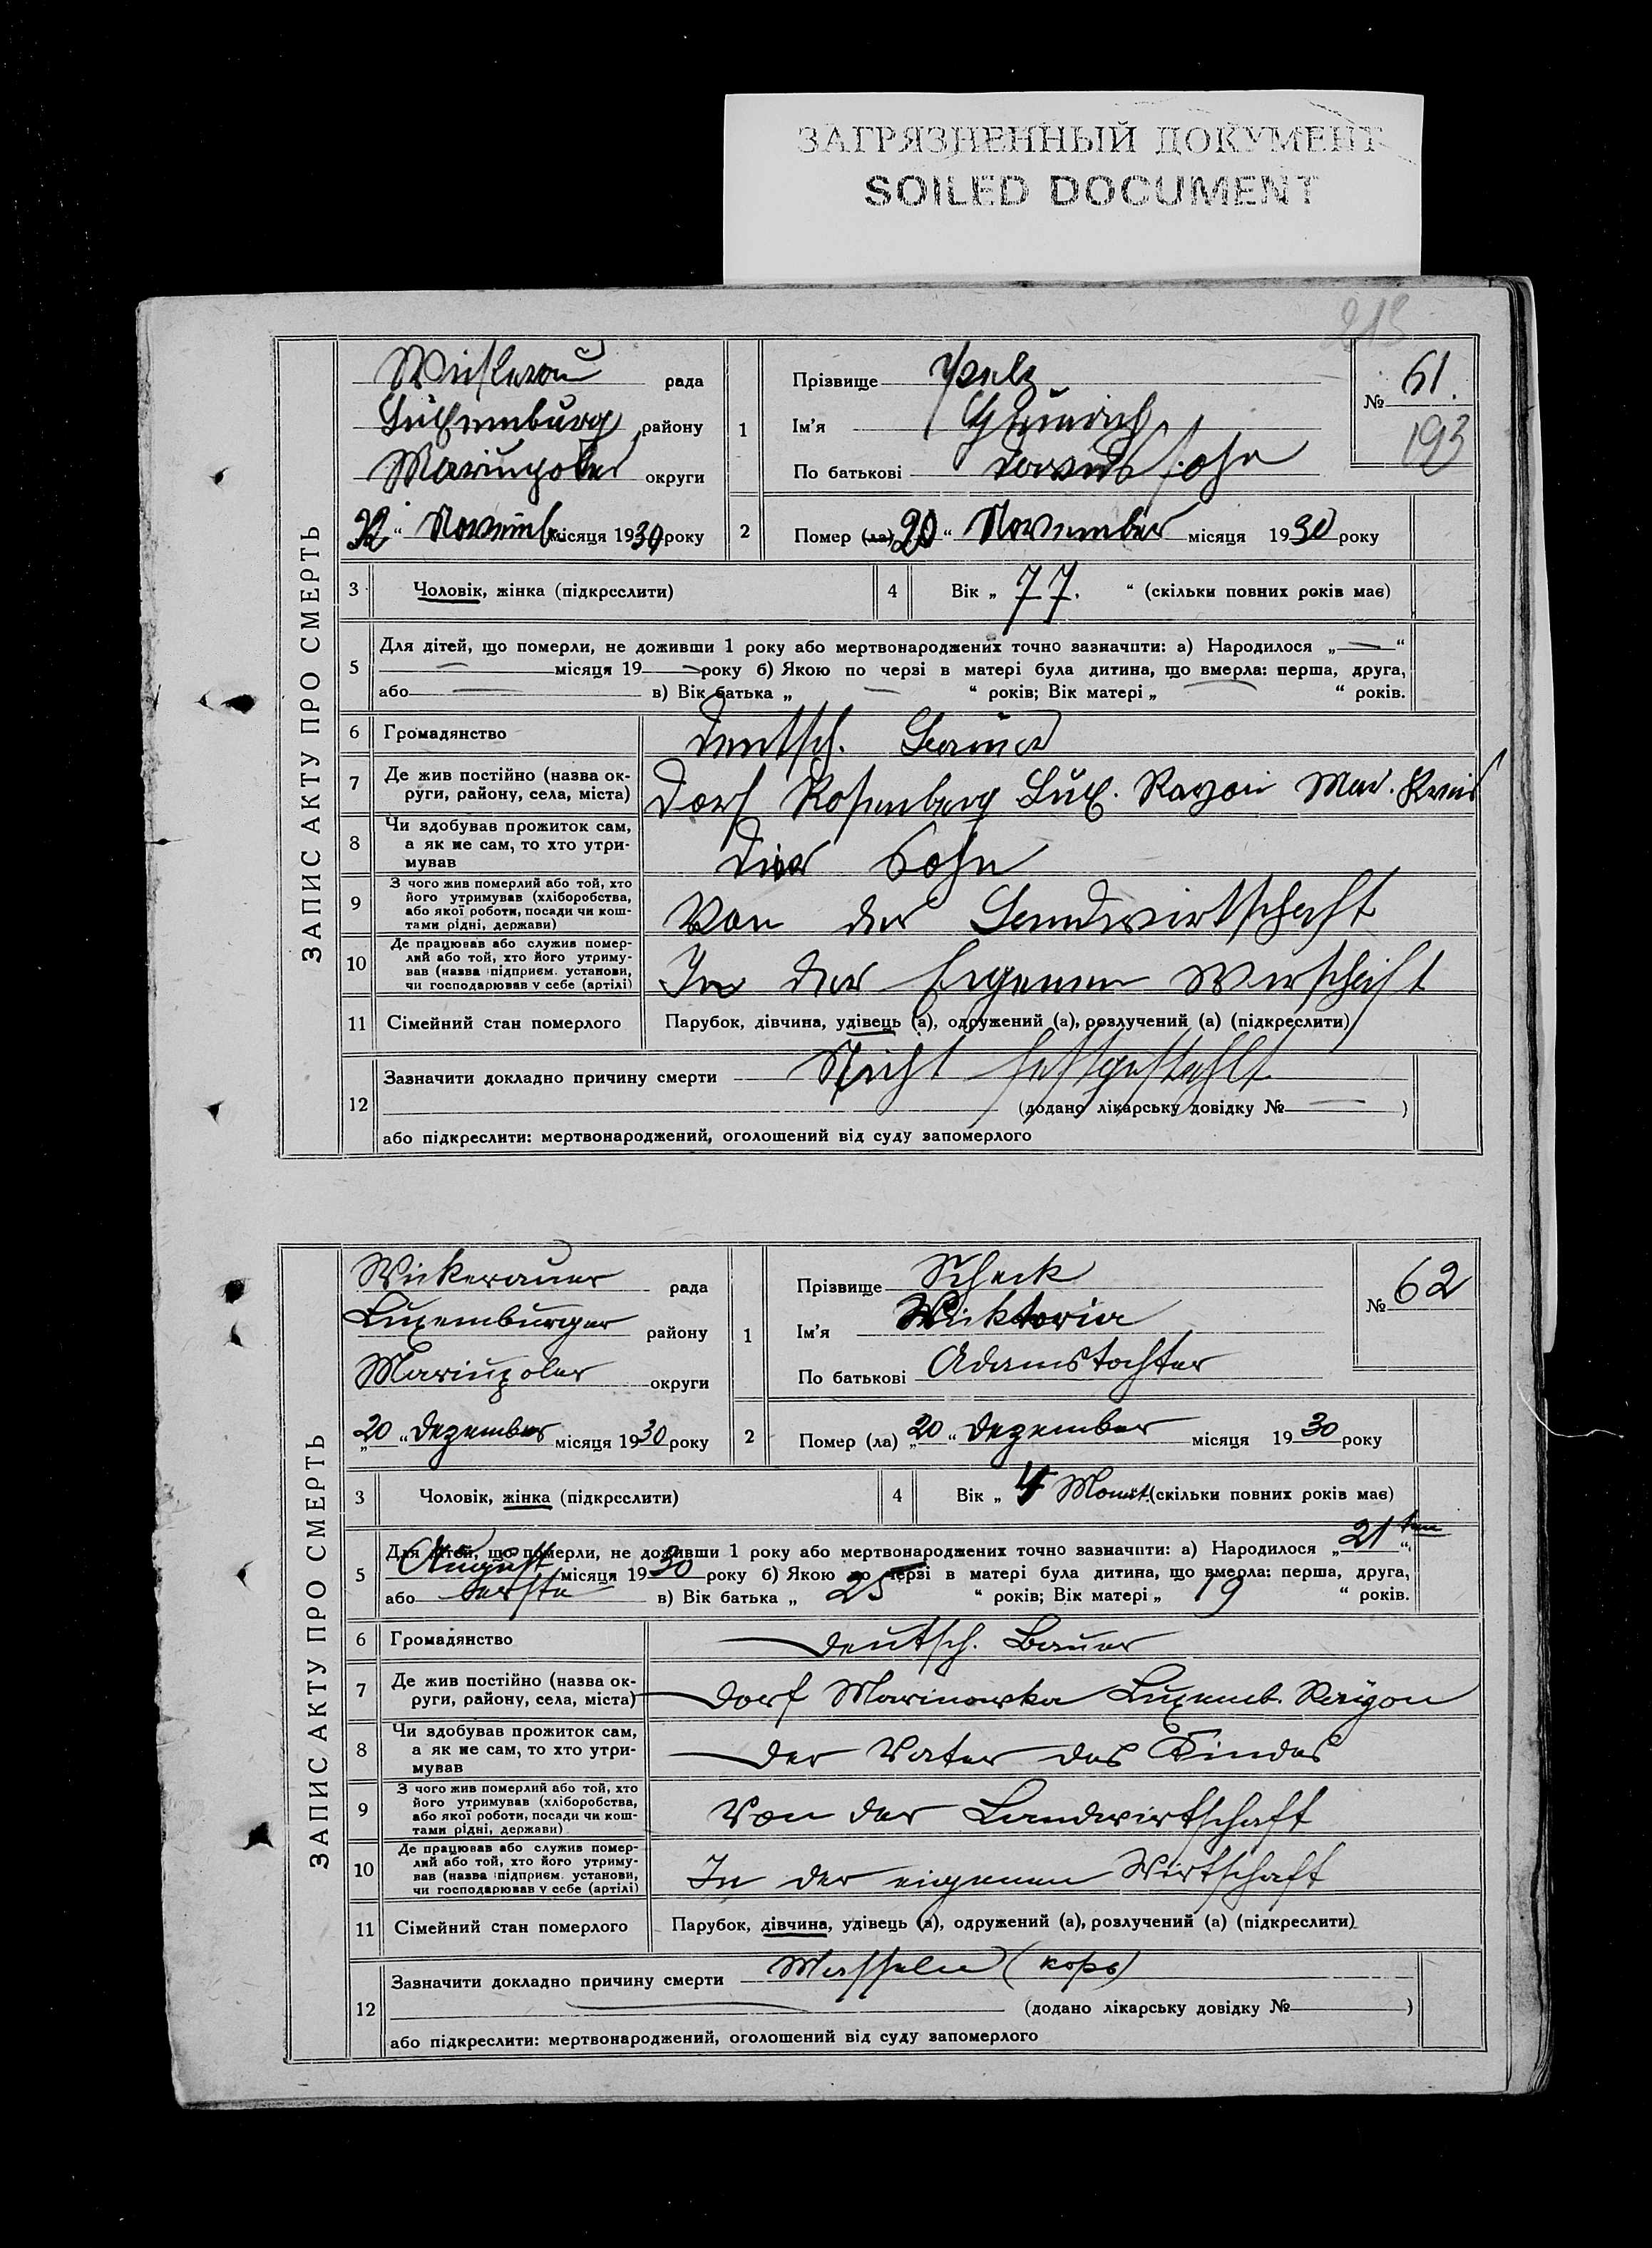 ЗАГРЯЗНЕННЫЙ ДОКУМЕНТ
SOILED DOCUMENT
213
ЗАПИС АКТУ ПРО СМЕРТЬ
рада
району
Mariupoler округи
22 “ Novemb місяця 1930 року
1
Прізвище
Ім'я Heinrich
По батькові Davidssohn
№ 61.
193
2
Помер (ла) 20 “ November місяця 1930 року
3 Чоловік, жінка (підкреслити)
4 Вік „ 77. “ (скільки повних років має)
5 Для дітей, що померли, не доживши 1 року або мертвонароджених точно зазначити: а) Народилося „—“
— місяця 19— року б) Якою по черзі в матері була дитина, що вмерла: перша, друга,
або — в) Вік батька „ — “ років; Вік матері „ — “ років.
6 Громадянство deutsch. Bauer
7 Де жив постійно (назва ок-
руги, району, села, міста) Dorf Rosenberg Lux. Rayon Mar. Kreis
8 Чи здобував прожиток сам,
а як не сам, то хто утри-
мував Der Sohn
9 З чого жив померлий або той, хто
його утримував (хліборобства,
або якої роботи, посади чи кош-
тами рідні, держави) Von der Landwirtschaft
10 Де працював або служив помер-
лий або той, хто його утриму-
вав (назва підприєм. установи,
чи господарював у себе (артілі) In der Eigenen Wirschaft
11 Сімейний стан померлого Парубок, дівчина, удівець (а), одружений (а), розлучений (а) (підкреслити)
12 Зазначити докладно причину смерти Nicht festgestehlt
(додано лікарську довідку № — )
або підкреслити: мертвонароджений, оголошений від суду запомерлого
ЗАПИС АКТУ ПРО СМЕРТЬ
Wickerauer рада
Luxemburger району
Mariupoler округи
„20 “ Dezember місяця 1930 року
1
Прізвище Scheck
Ім'я Wiktoria
По батькові Adamstochter
№ 62
2
Помер (ла) „20 “ Dezember місяця 1930 року
3 Чоловік, жінка (підкреслити)
4 Вік „ 4 Monat. (скільки повних років має)
5 Для дітей, що померли, не доживши 1 року або мертвонароджених точно зазначити: а) Народилося „21ten“
August місяця 1930 року б) Якою по черзі в матері була дитина, що вмерла: перша, друга,
або erste в) Вік батька „ 25 “ років; Вік матері „ 19 “ років.
6 Громадянство deutsch. Bauer
7 Де жив постійно (назва ок-
руги, району, села, міста) Dorf Marinowka Luxemb. Rayon
8 Чи здобував прожиток сам,
а як не сам, то хто утри-
мував der Vater des Kindes
9 З чого жив померлий або той, хто
його утримував (хліборобства,
або якої роботи, посади чи кош-
тами рідні, держави) Von der Landwirtschaft
10 Де працював або служив помер-
лий або той, хто його утриму-
вав (назва підприєм. установи,
чи господарював у себе (артілі) In der eigenen Wirtschaft
11 Сімейний стан померлого Парубок, дівчина, удівець (а), одружений (а), розлучений (а) (підкреслити)
12 Зазначити докладно причину смерти Masseln (корь)
(додано лікарську довідку № )
або підкреслити: мертвонароджений, оголошений від суду запомерлого